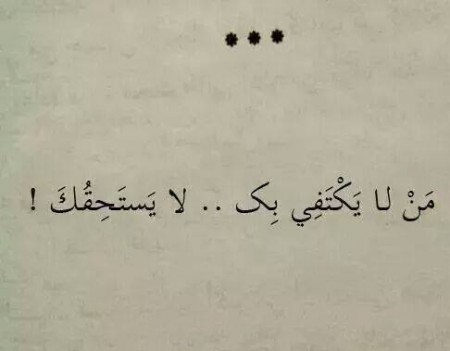 ***
مَنْ لا يَكْتَفِي بِک .. لا يَستَحِقُكَ !